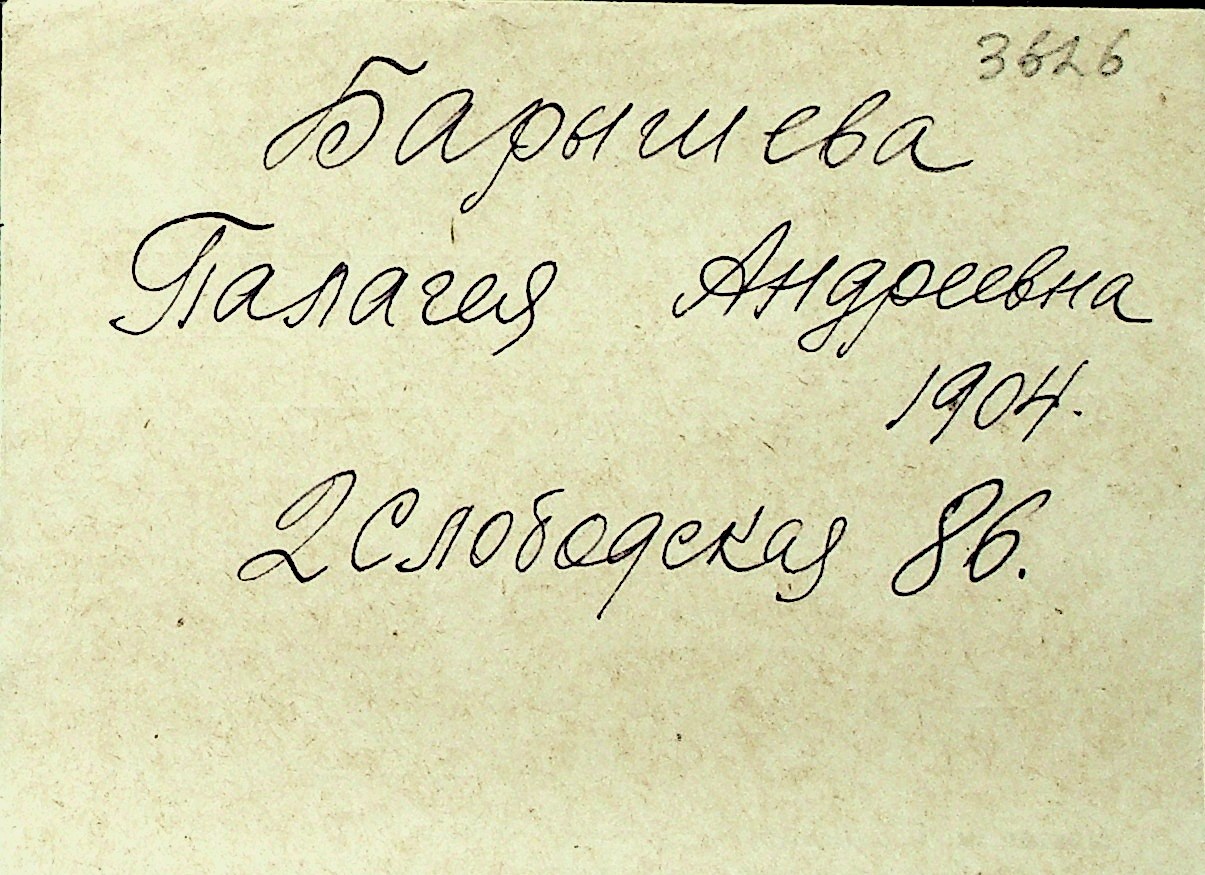 3626
Барышева
Палагея Андреевна
1904.
2 Слободская 86.